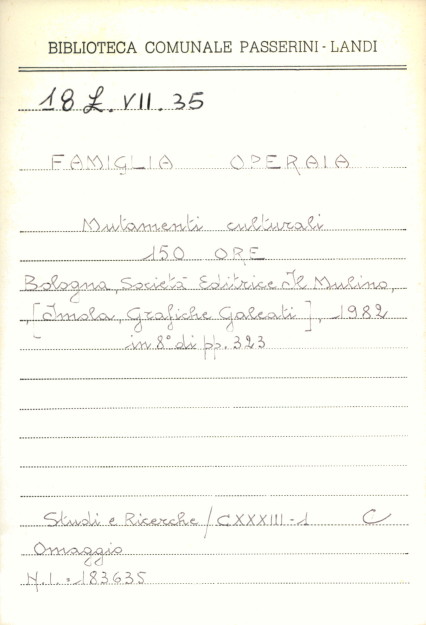 BIBLIOTECA COMUNALE PASSERINI - LANDI
18 L. VII. 35
FAMIGLIA OPERAIA
Mutamenti culturali
150 ORE
Bologna, Società Editrice Il Mulino,
[Imola, Grafiche Galeati], 1982
in 8° di pp. 323
Studi e Ricerche / CXXXIII-1 C
Omaggio
N.I. 183635